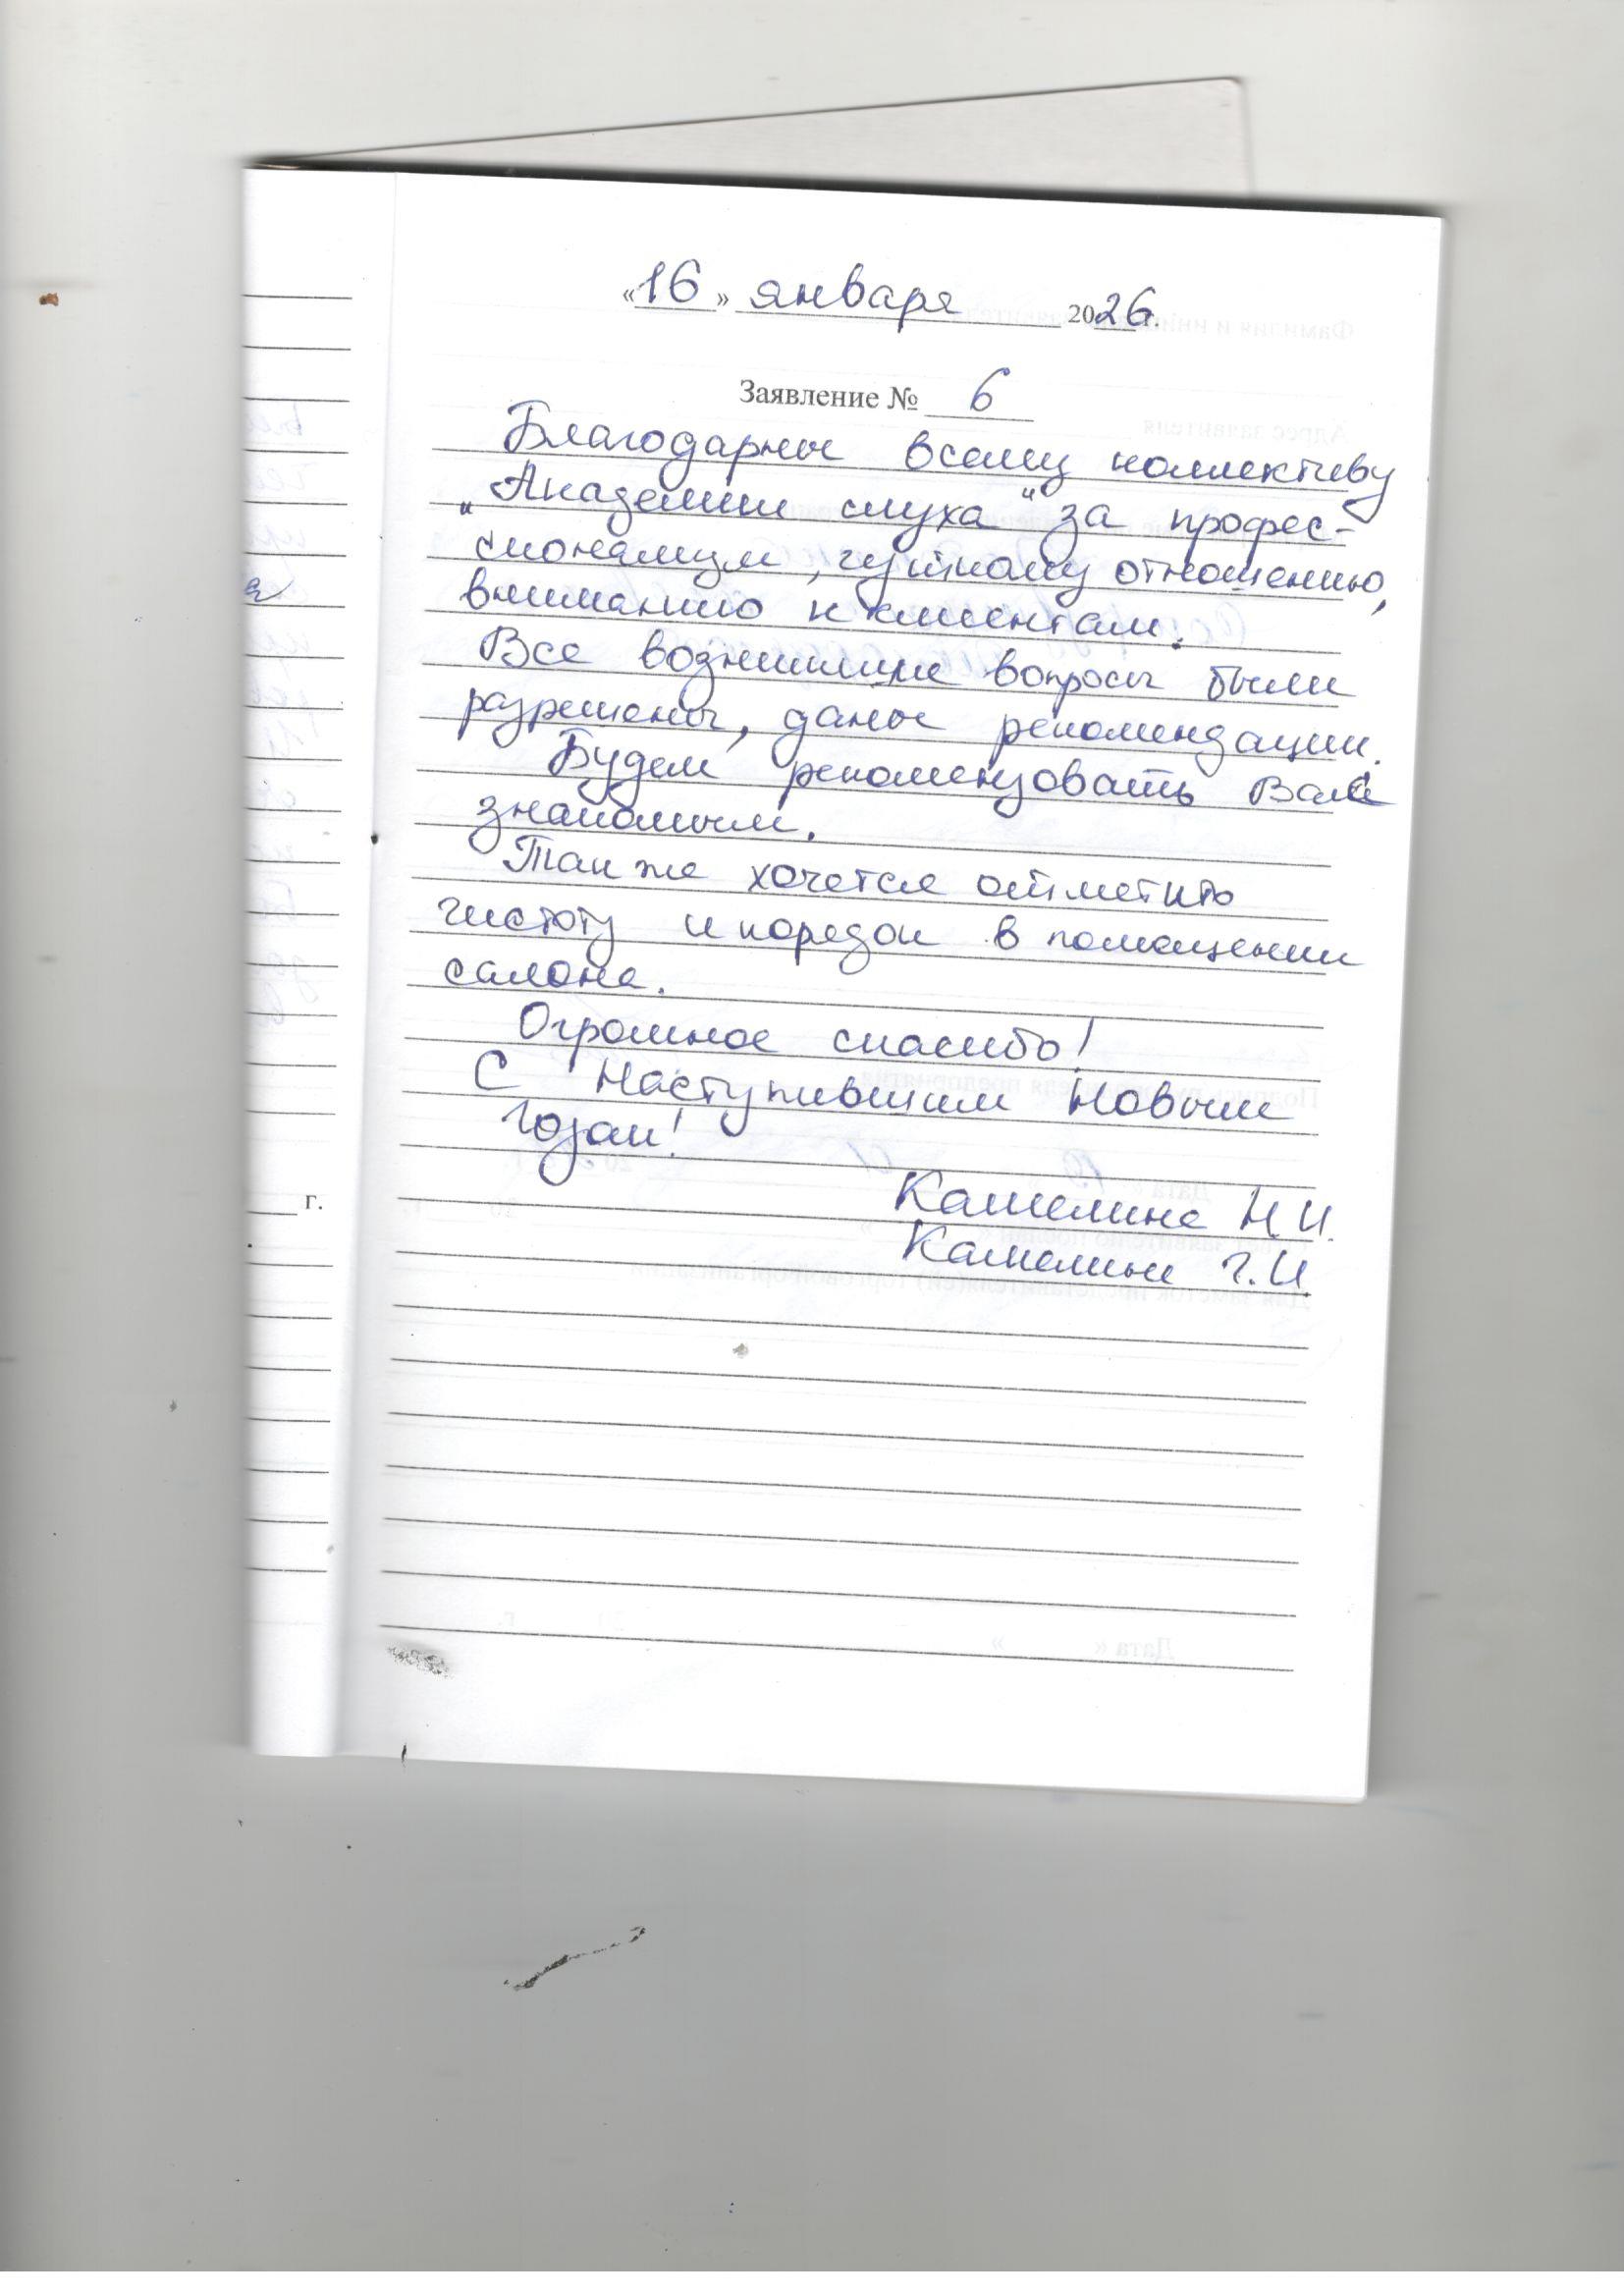 «16» января 2026г.
Заявление № 6
Благодарны всему коллективу
„Академии слуха“ за профес-
сионализм, чуткому отношению,
вниманию к клиентам.
Все возникшие вопросы были
разрешены, даны рекомендации.
Будем рекомендовать Вас
знакомым.
Так же хочется отметить
чистоту и порядок в помещении
салона.
Огромное спасибо!
С Наступившим Новым
годом!
Камелина Н.И.
Камелин Г.И.
г.